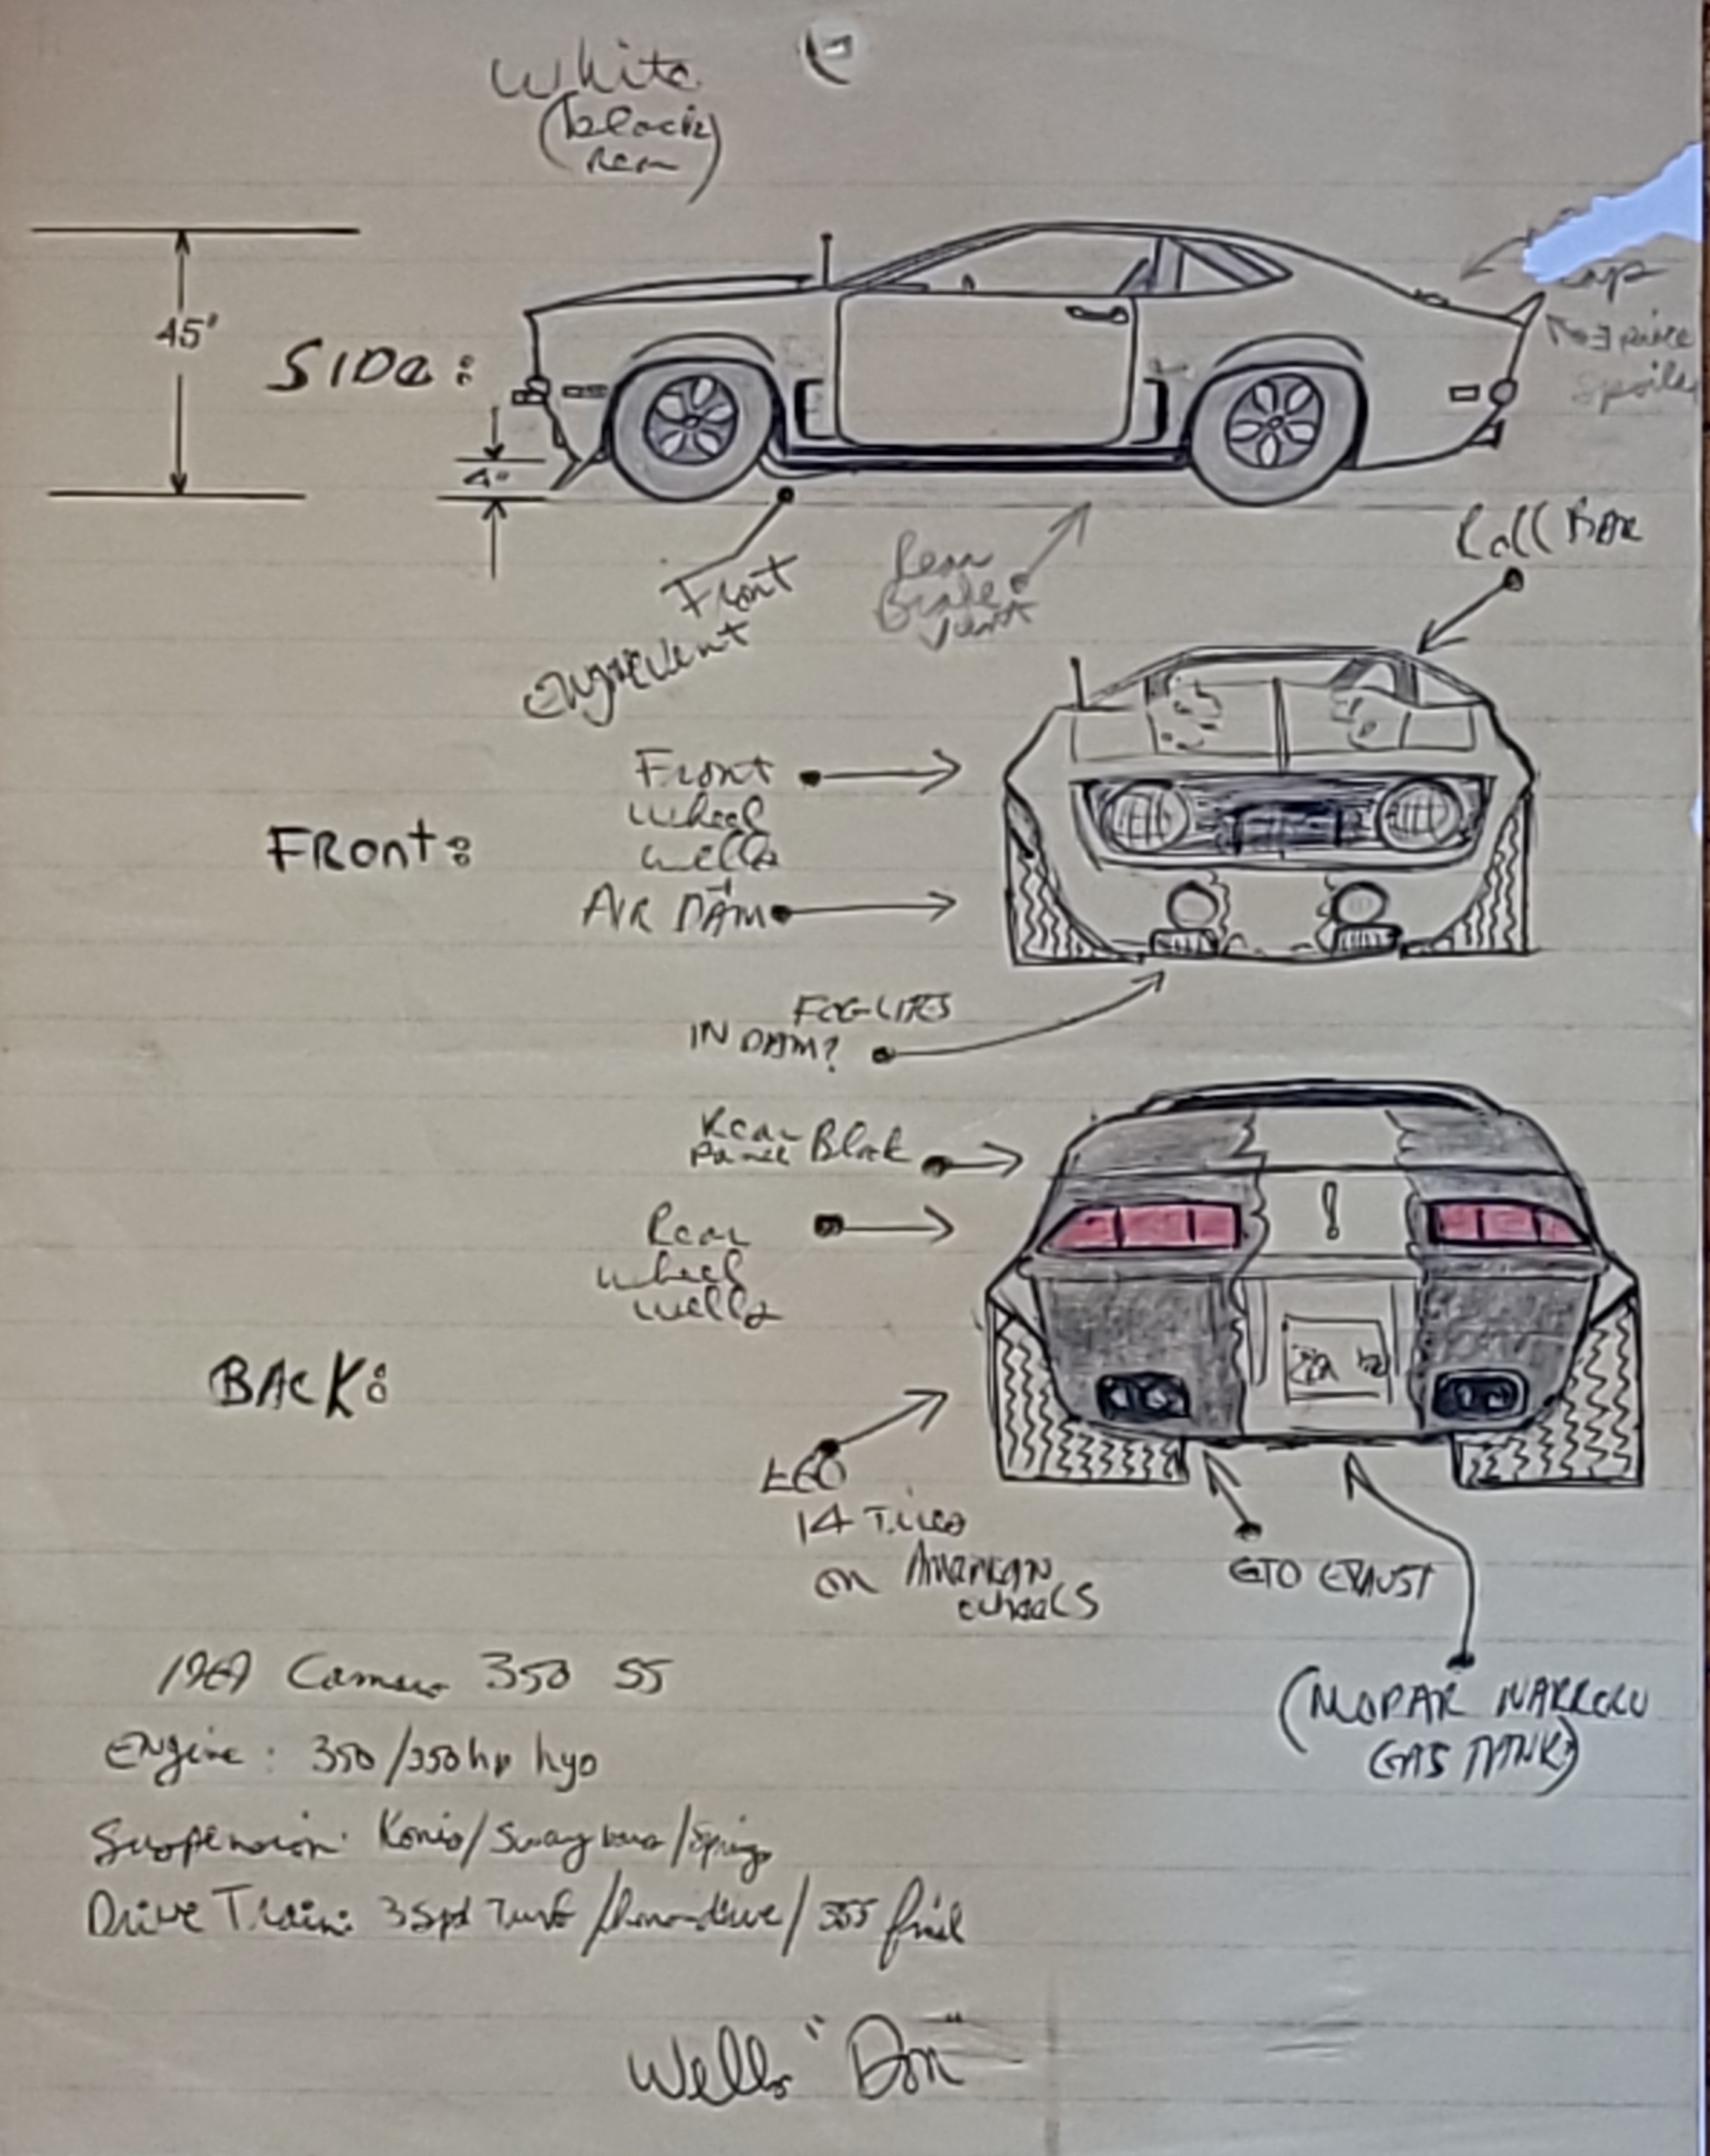 White
(black
rear)
45"
SIDe:
4"
cap
3 piece
Spoiler
Front
engine vent
Rear
Brake
vent
Roll Bar
Front
wheel
wells
FRont:
AIR DAM
FOG-LITES
IN DAM?
Rear
Panel Black
Rear
wheel
wells
BACK:
E60
14 Tires
on American
wheels
GTO EXAUST
(MOPAR NARROW
GAS TANK?)
1969 Camaro 350 SS
Engine: 350/350hp hyo
Suspension: Konis/Sway bars/Springs
Drive Train: 3 Spd Turb / / 355 final
Wells "Don"